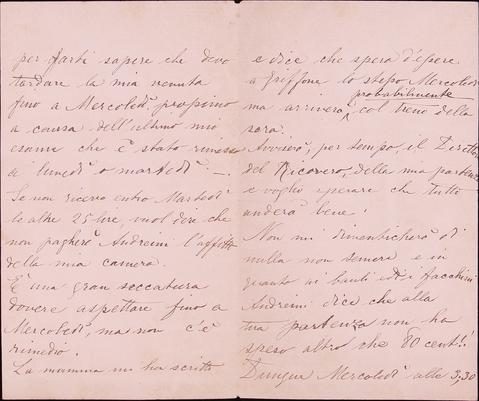 per farti sapere che devo
tardare la mia venuta
fino a Mercoledì prossimo
a causa dell'ultimo mio
esame che è stato rimesso
a lunedì o martedì —.
Se non ricevo entro Martedì
le altre 25 lire, vuol dire che
non pagherò Andreini l'affitto
della mia camera.
È una gran seccatura
dovere aspettare fino a
Mercoledì, ma non c'è
rimedio.
La mamma mi ha scritto
e dice che spera d'essere
a Griffone lo stesso Mercoledì
probabilmente
ma arriverà col treno della
sera.
Avviserò, per tempo, il Direttore
del Ricovero, della mia partenza
e voglio sperare che tutto
anderà bene!
Non mi dimenticherò di
nulla non temere e in
quanto ai bauli e facchini
Andreini dice che alla
tua partenza non ha
speso altro che 80 cent!!
Dunque Mercoledì alle 3,30